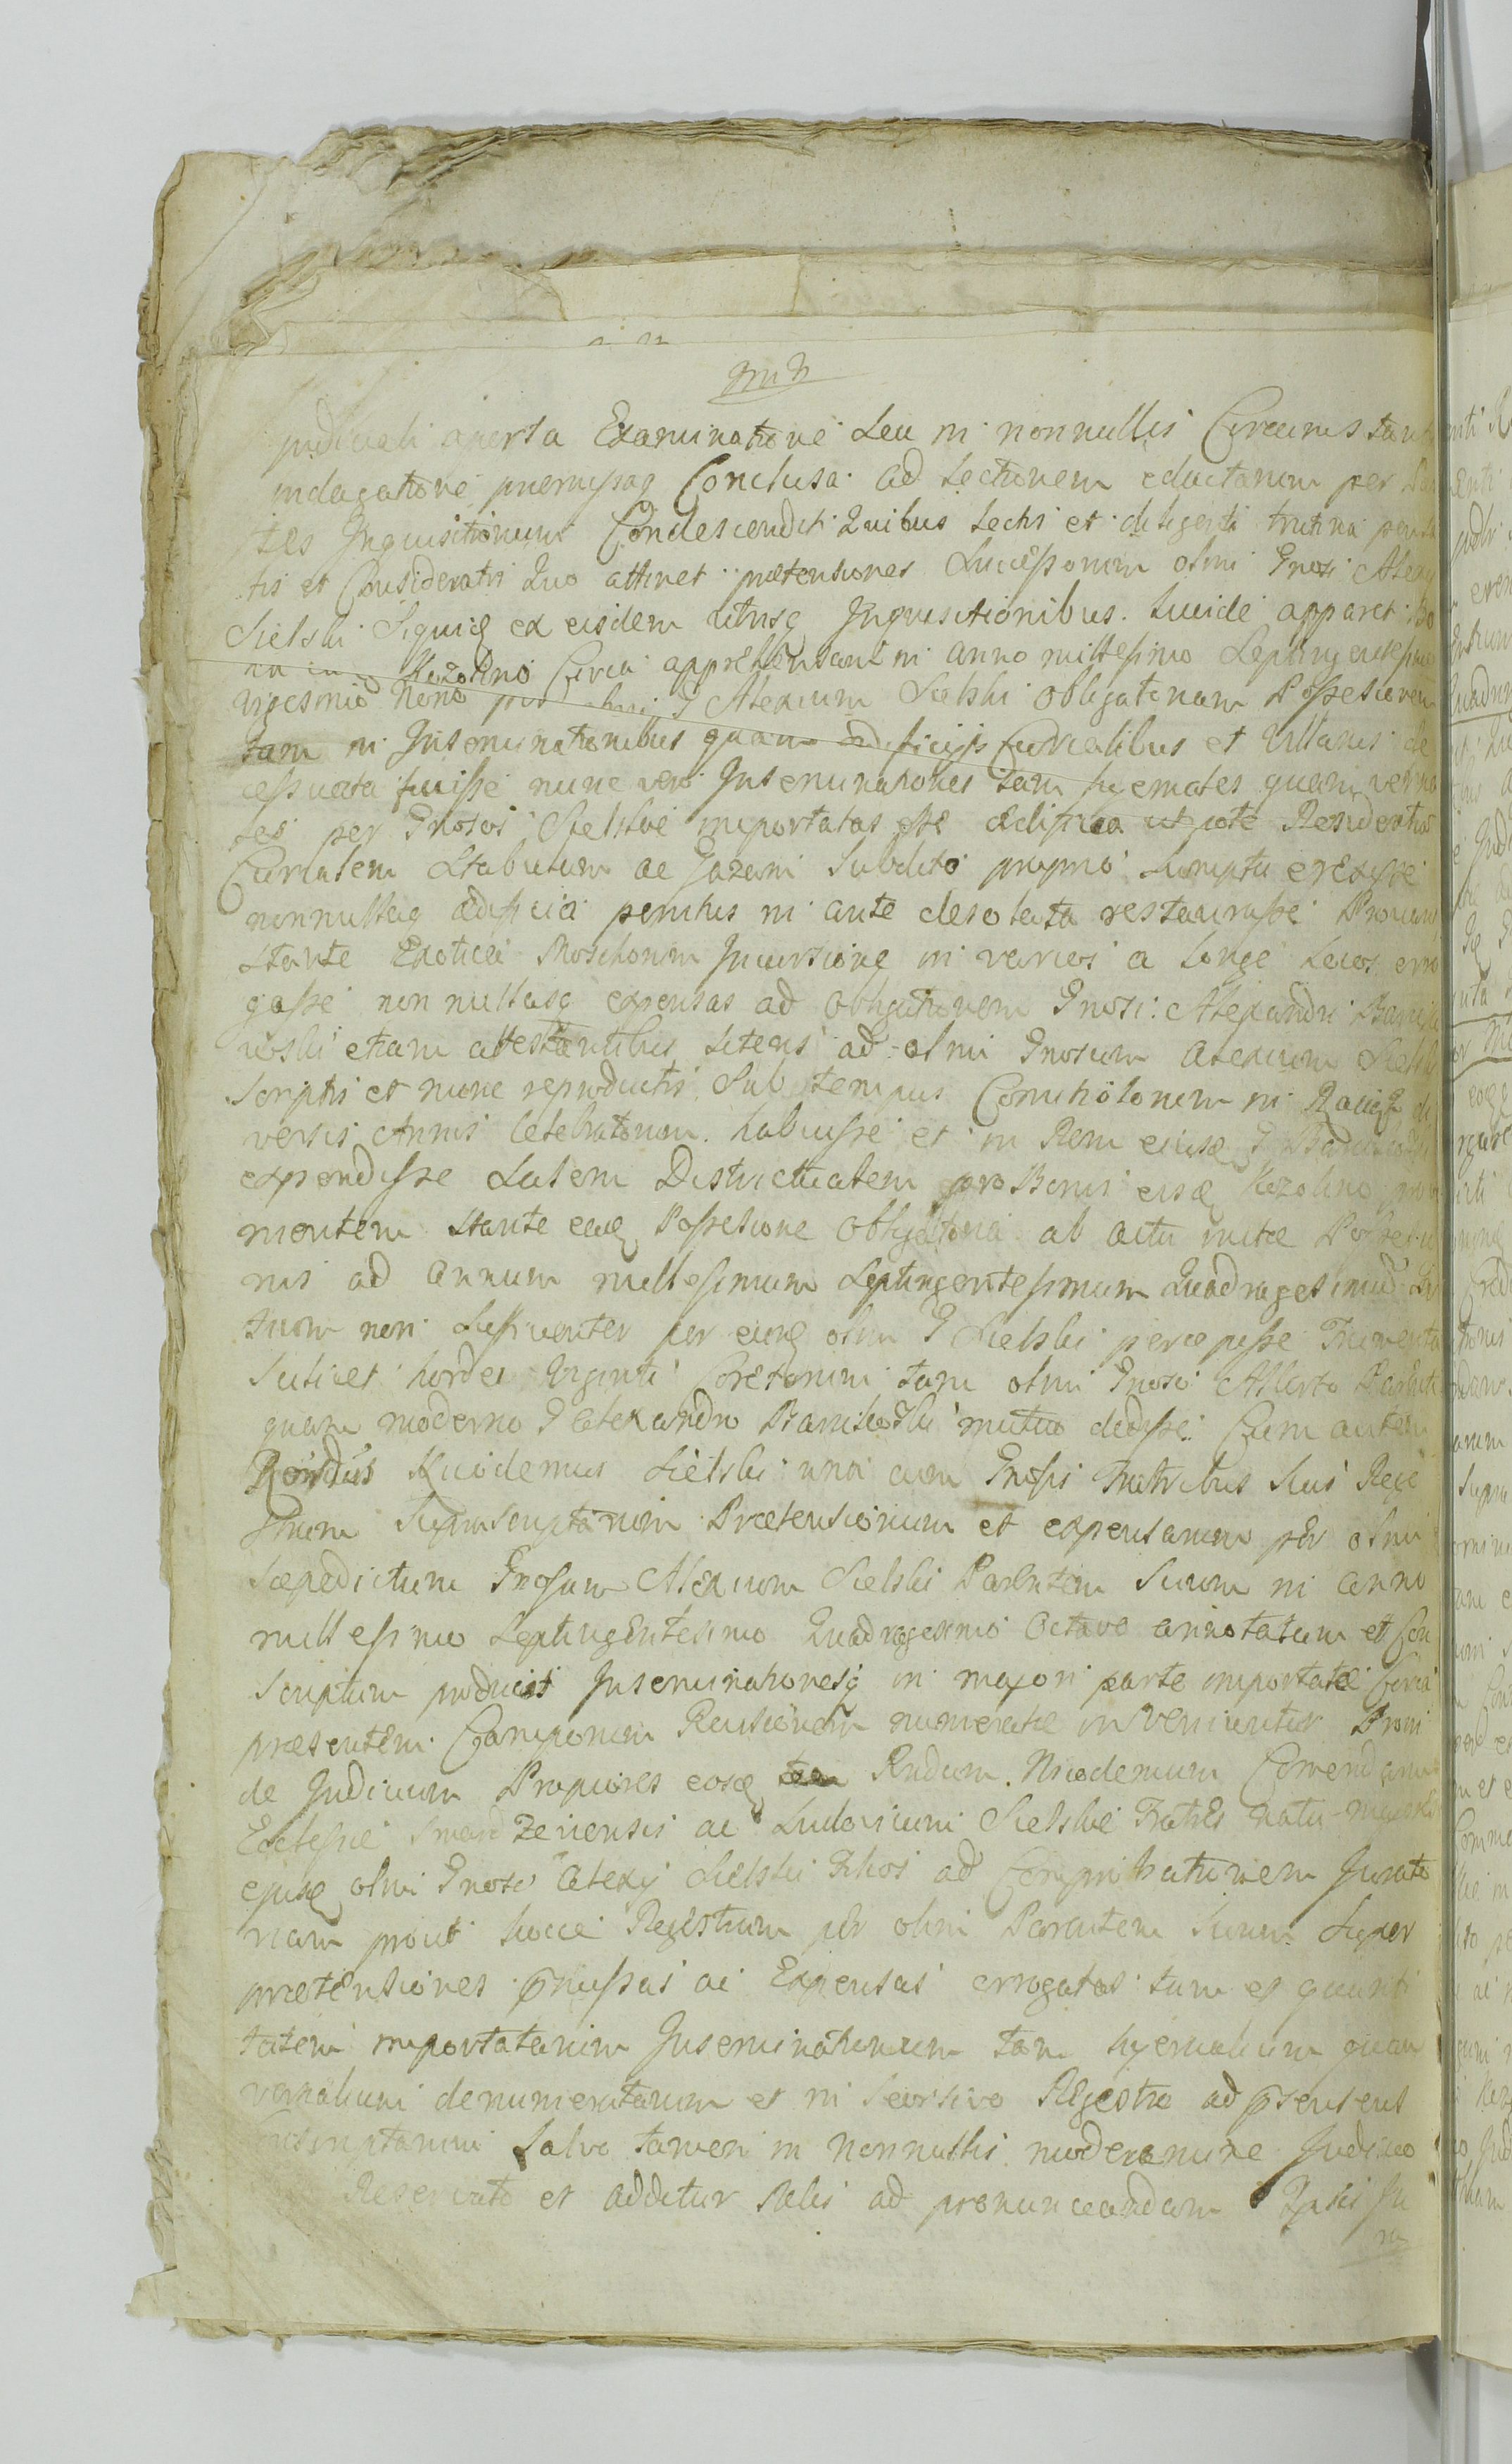 judiciali aperta Examinatione Seu in nonnullis Circumstan
indagatione præmissaq Conclusa ad Lectionem eductarum per Par
tes Inquisitionum Condescendit Quibus Lectis et diligenti trutina pensa
tis et Consideratis Quo attinet prætensiones Successorum olim Gnosi Alexy
Sielski Siquid ex eisdem utrisq Inquisitionibus Lucide apparet Bo
na Kozolino Circa apprehensam in anno millesimo Septingentesimo
vigesimo Nono per olim G Alexium Sielski obligatoriam Possessionem
tam in Inseminationibus quam ædificijs Curialibus et Villanis de
cessuata fuisse nunc vero Inseminationes tam hyemales quam verna
les per Gnosos Sielskie importatas esse ædificia ut pote Residentia
Curialem Stabulum ac Gazam Subdito proprio Sumptu erexisse
nonnullaq ædificia penitus in ante desolata restaurasse
Stante Exotica Moschorum Incursione in varios a longe Locos erro
gasse non nullasq expensas ad obligationem Gnosi Alexandri
etiam attestantibus Literis ad olim Gnosum Alexium Sielski
Scriptis et nunc reproductis Sub tempus Comitiolorum in di
versis Annis Celebratorum habuisse et in Rem eiusd G
expendisse Salem Districtualem pro Bonis eisd Kozolino
mentem Stante ead Possesione Obligatoria ab actu initæ Possessio
nis ad annum millesimum Septingentesimum Quadragesimum
tum non per eund olim G Sielski percepisse Frumenta
Scilicet hordei Viginti Coretorum tam olim Gnoso Alberto
quam moderno G Alexandro mutuo dedisse Cum autem
Rondus Nicodemus Sielski una cum Gnosis Fratribus Suis Rege
strum Suprascriptarum Prætensionum et expensarum per olim
Sæpedictum Gnosum Alexium Sielski Parentem Suum in anno
millesimo Septingentesimo Quadragesimo Octavo annotatum et Con
scriptum producit Inseminationesq in majori parte importatæ Circa
præsentem Camporum Revisionem numeratæ inveniuntur Proin
de Judicium Propiores eosd Rndum Nicodemum Comendarium
Ecclesiæ ac Ludovicum Sielskie Fratres natu majores
ejusd olim Gnosi Alexy Sielski Filios ad Comprobationem Jurato
riam prout hocce Regestrum per olim Parentem Suum Super
prætensiones præmissas ac Expensas errogatas tum et quanti
tatem importatarum Inseminationum tam hyemalium quam
vernalium denumeratarum et in Seorsivo Regestro ad præsens
Salvo tamen in nonnullis moderamine Judicio
Reservato et additur Salis ad pronunceandam